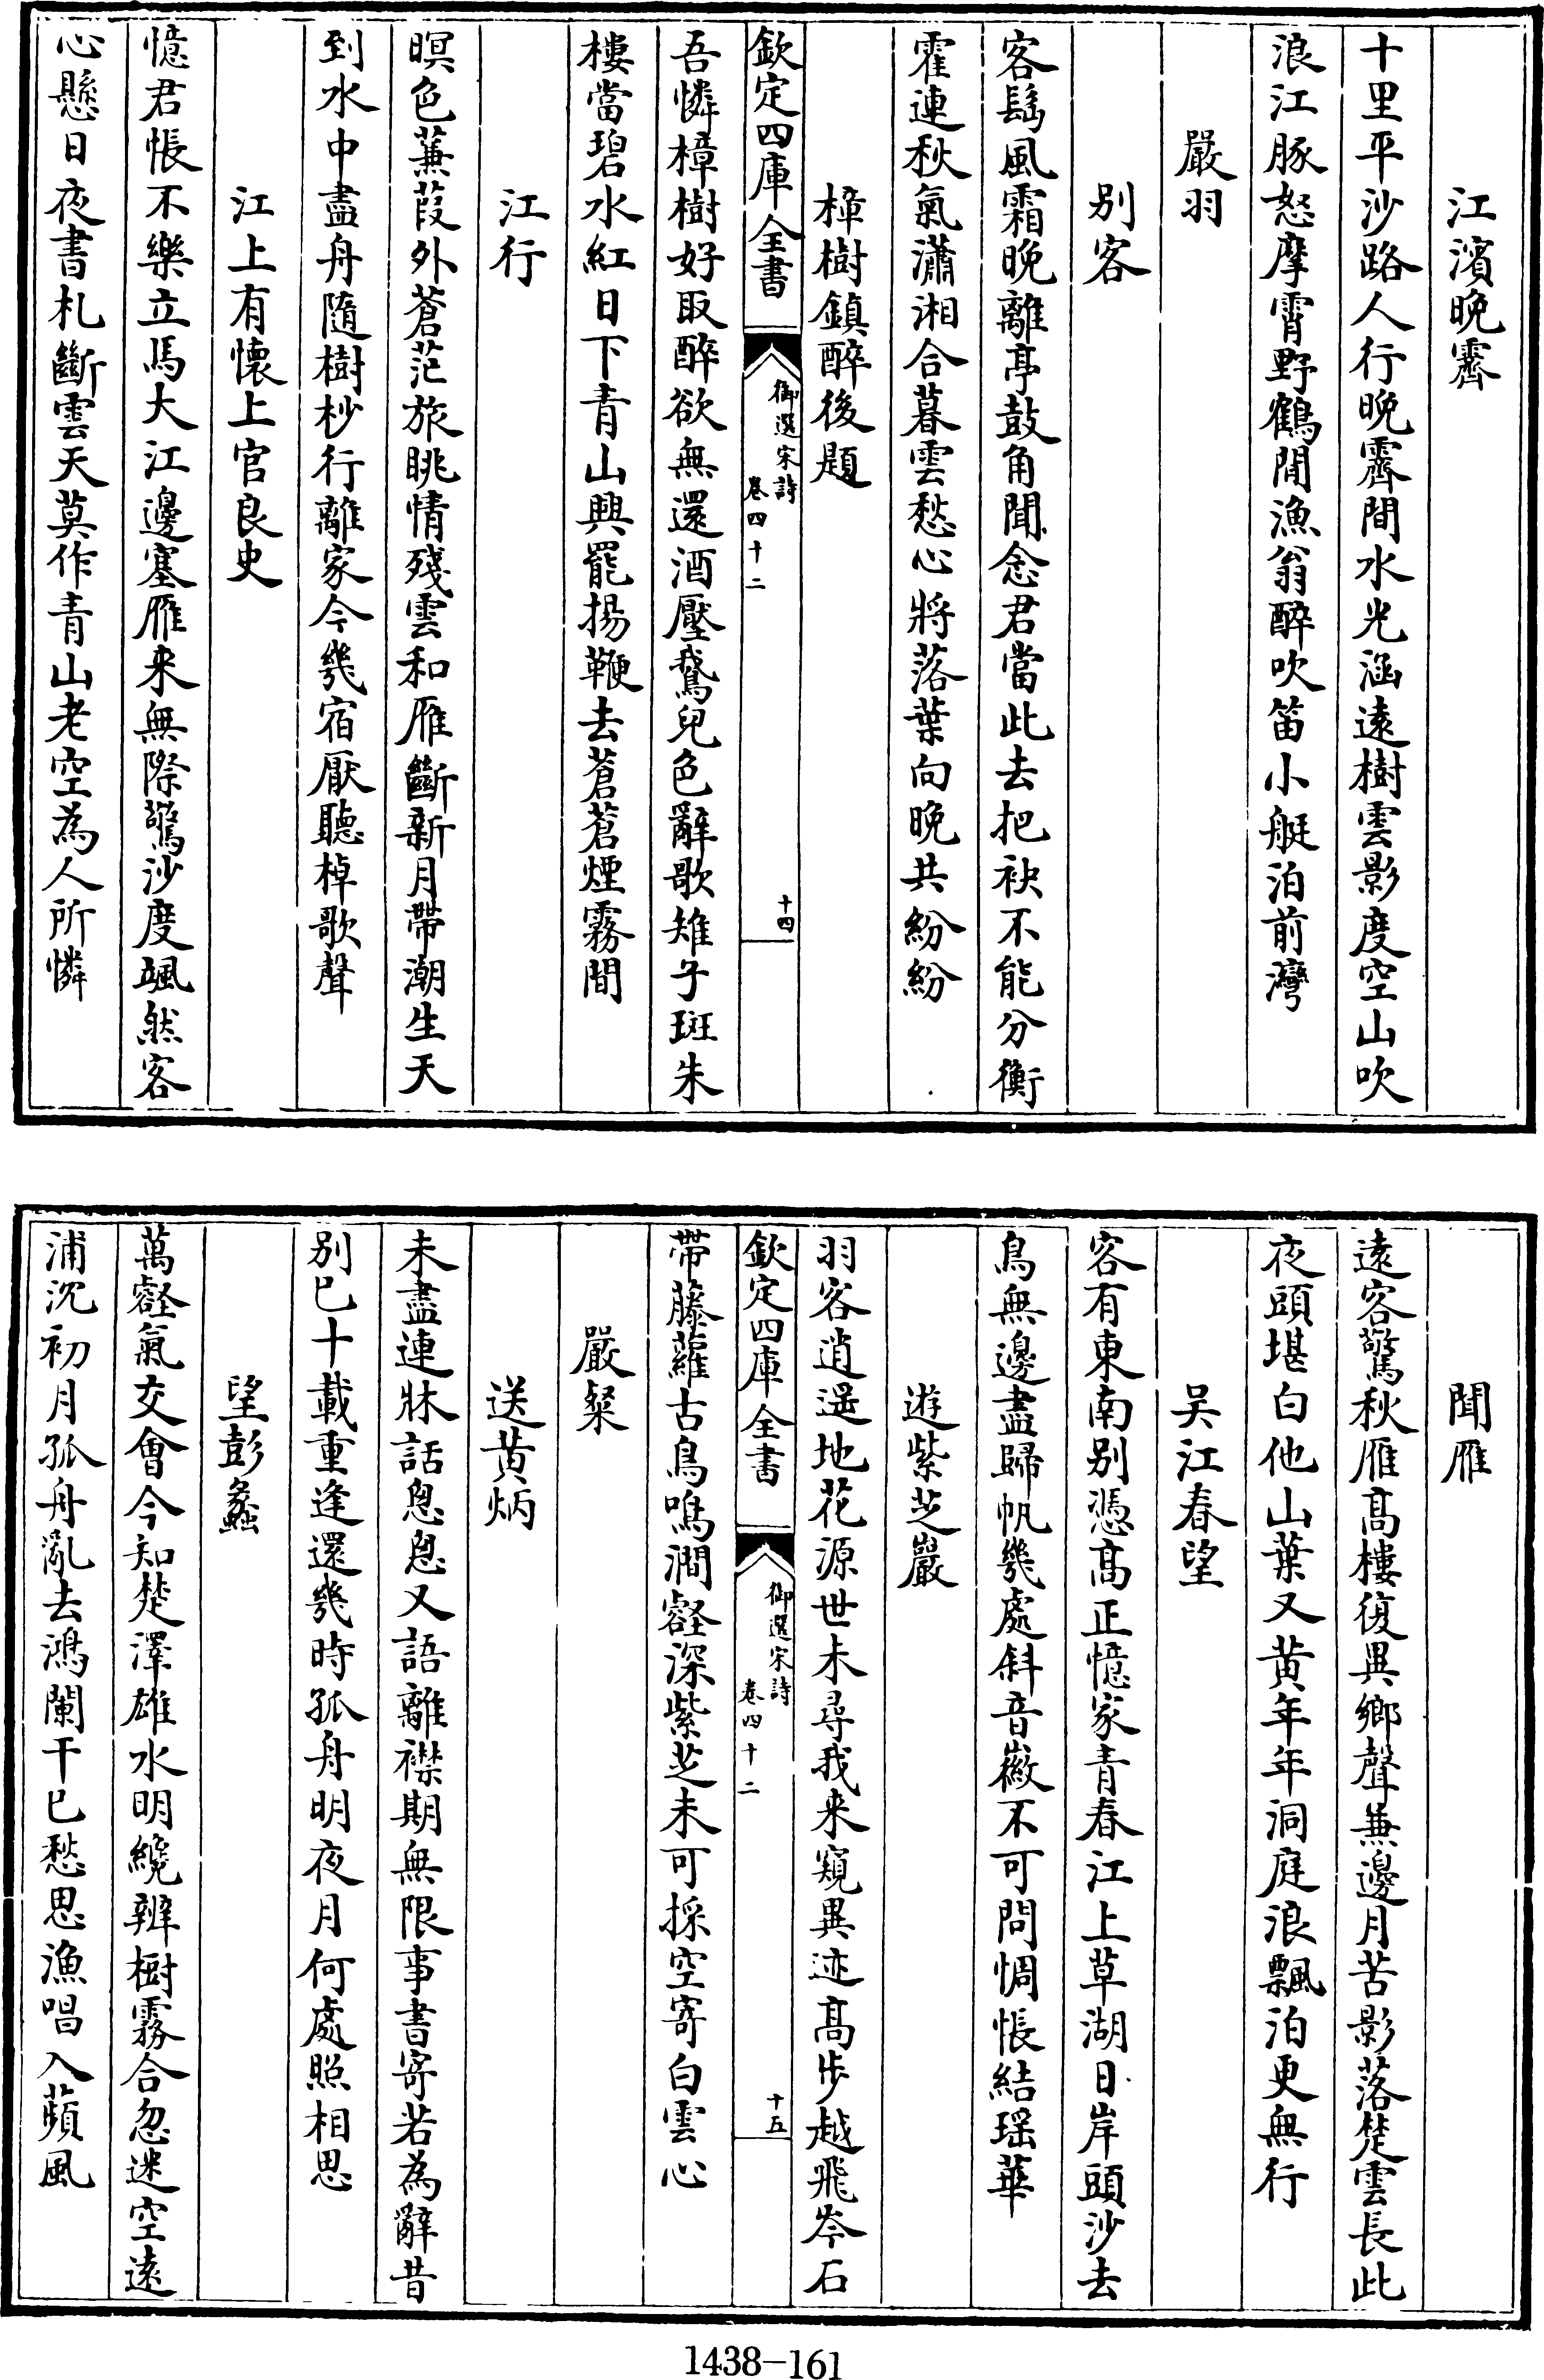 江濱晩霽
十里平沙路人行晩霽間水光涵遠樹雲影度空山吹
浪江豚怒摩霄野鶴閒漁翁醉吹笛小艇泊前灣
嚴羽
別客
客鬍風霜晩離亭鼓角聞念君當此去把袂不能分衡
霍連秋氣瀟湘合暮雲愁心將落葉向晩共紛紛
樟樹鎮醉後題
欽定四庫全書
御選宋詩
卷四十二
十四
吾憐樟樹好取醉欲無還酒壓鵞兒色辭歌雉子斑朱
樓當碧水紅日下青山興罷揚鞭去蒼蒼煙霧間
江行
暝色蒹葭外蒼茫旅眺情殘雲和雁斷新月帶潮生天
到水中盡舟隨樹杪行離家今幾宿厭聽棹歌聲
江上有懷上官良史
憶君悵不樂立馬大江邊塞雁来無際驚沙度颯然客
心懸日夜書札斷雲天莫作青山老空為人所憐
聞雁
遠客驚秋雁髙樓復異鄉聲兼邊月苦影落楚雲長此
夜頭堪白他山葉又黄年年洞庭浪飄泊更無行
吴江春望
客有東南别憑髙正憶家青春江上草湖日岸頭沙去
鳥無邊盡歸帆幾處斜音徽不可問惆悵結瑶華
遊紫芝巖
羽客逍遥地花源世未尋我来窺異迹髙步越飛岑石
欽定四庫全書
御選宋詩
卷四十二
十五
帶藤蘿古鳥鳴澗壑深紫芝未可採空寄白雲心
嚴粲
送黄炳
未盡連牀話怱怱又語離襟期無限事書寄若為辭昔
别已十載重逢還幾時孤舟明夜月何處照相思
望彭蠡
萬壑氣交會今知楚澤雄水明纔辨樹霧合忽迷空遠
浦沉初月孤舟亂去鴻闌干已愁思漁唱入蘋風
1438-161